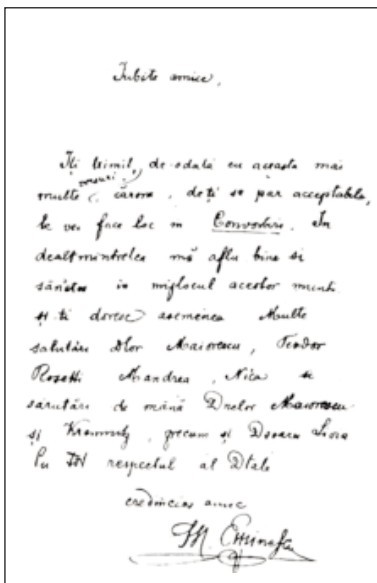 Iubite amice,
Iți trimit, de-odată cu aceasta mai
versuri
multe, cărora, de ți se par acceptabile,
le vei face loc în Convorbiri. În
dealtmintrelea mă aflu bine și
sănătos in mijlocul acestor munți
și-ti doresc asemenea Multe
salutări Dlor Maiorescu, Teodor
Rosetti Mandrea, Nica si
sărutări de mână Dnelor Maiorescu
și Kremnitz, precum și Dșoara Livia
Cu tot respectul al Dtale
credincios amic
M Eminescu